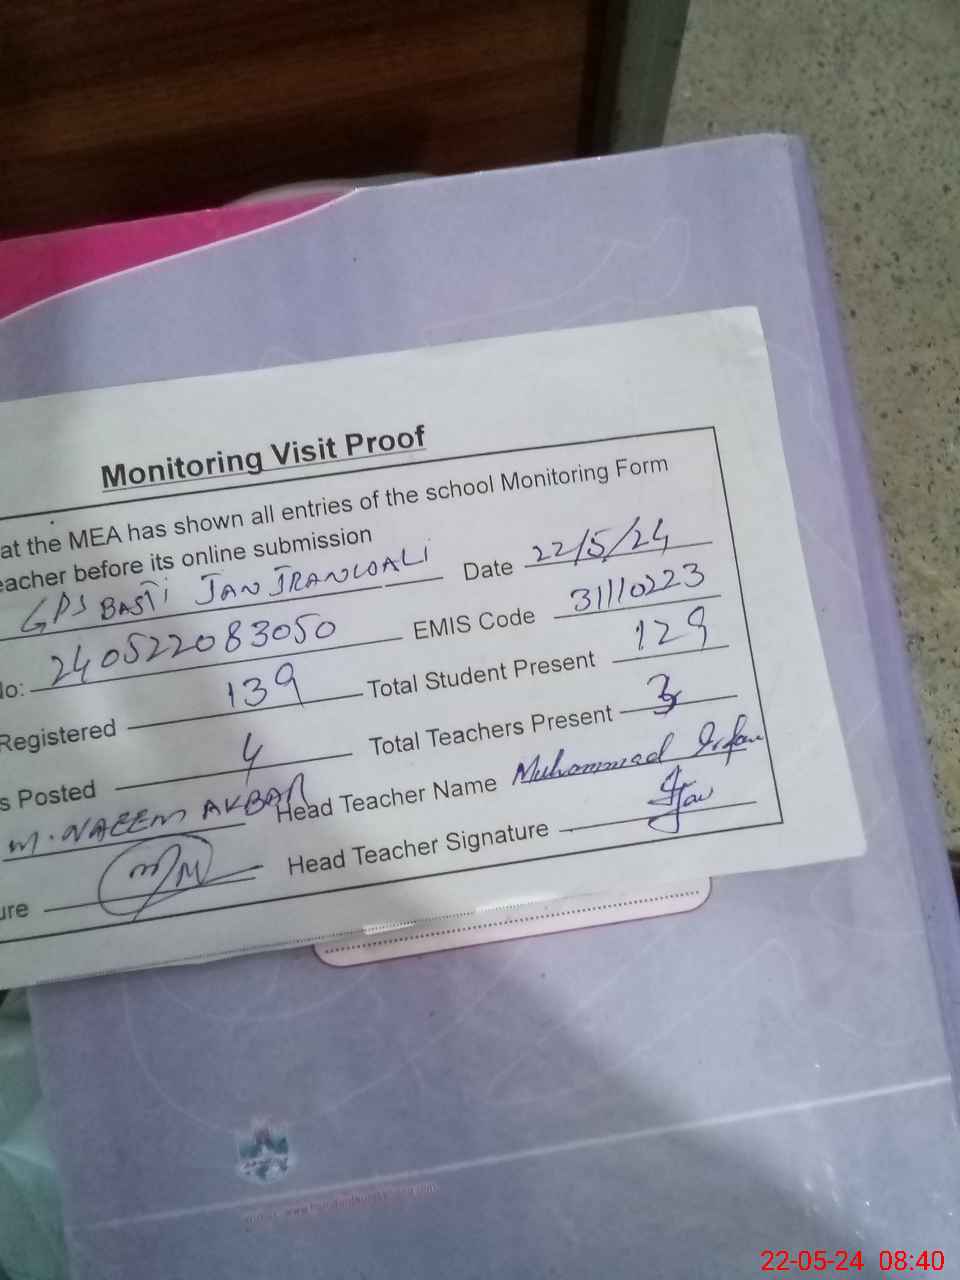 Monitoring Visit Proof
at the MEA has shown all entries of the school Monitoring Form
eacher before its online submission
GPS BASTI JAN JRANWALI Date 22/5/24
No: 240522083050 EMIS Code 31110223
Registered 139 Total Student Present 129
s Posted 4 Total Teachers Present 3
M. NAEEM AKBAR Head Teacher Name Muhammad Irfan
ure Head Teacher Signature
22-05-24 08:40